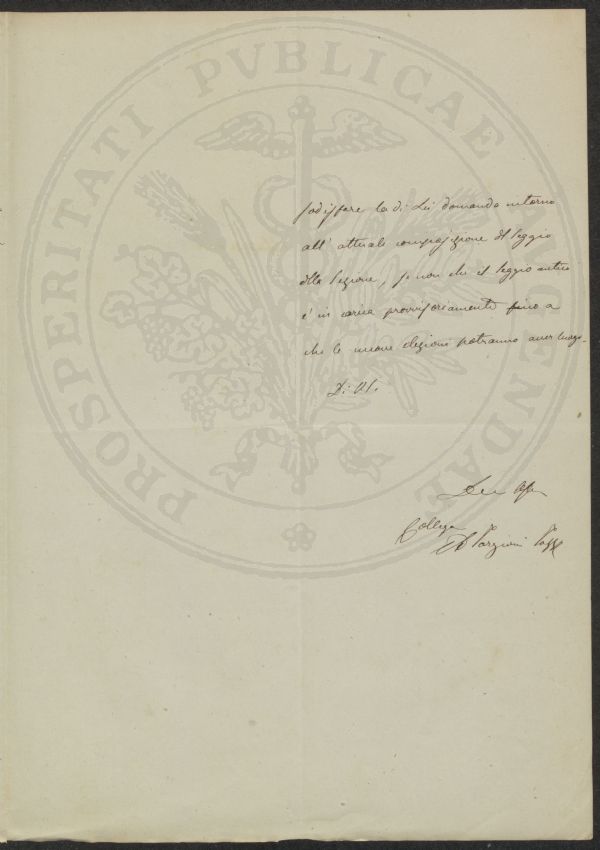 PROSPERITATI PVBLICAE AVGENDAE
sodisfare la di Lei domanda intorno
all' attuale composizione del seggio
della Sezione, se non che il seggio antico
è in carica provvisoriamente fino a
che le nuove elezioni potranno aver luogo.
Di VS.
Dev Aff
Collega
A Targioni Tozz